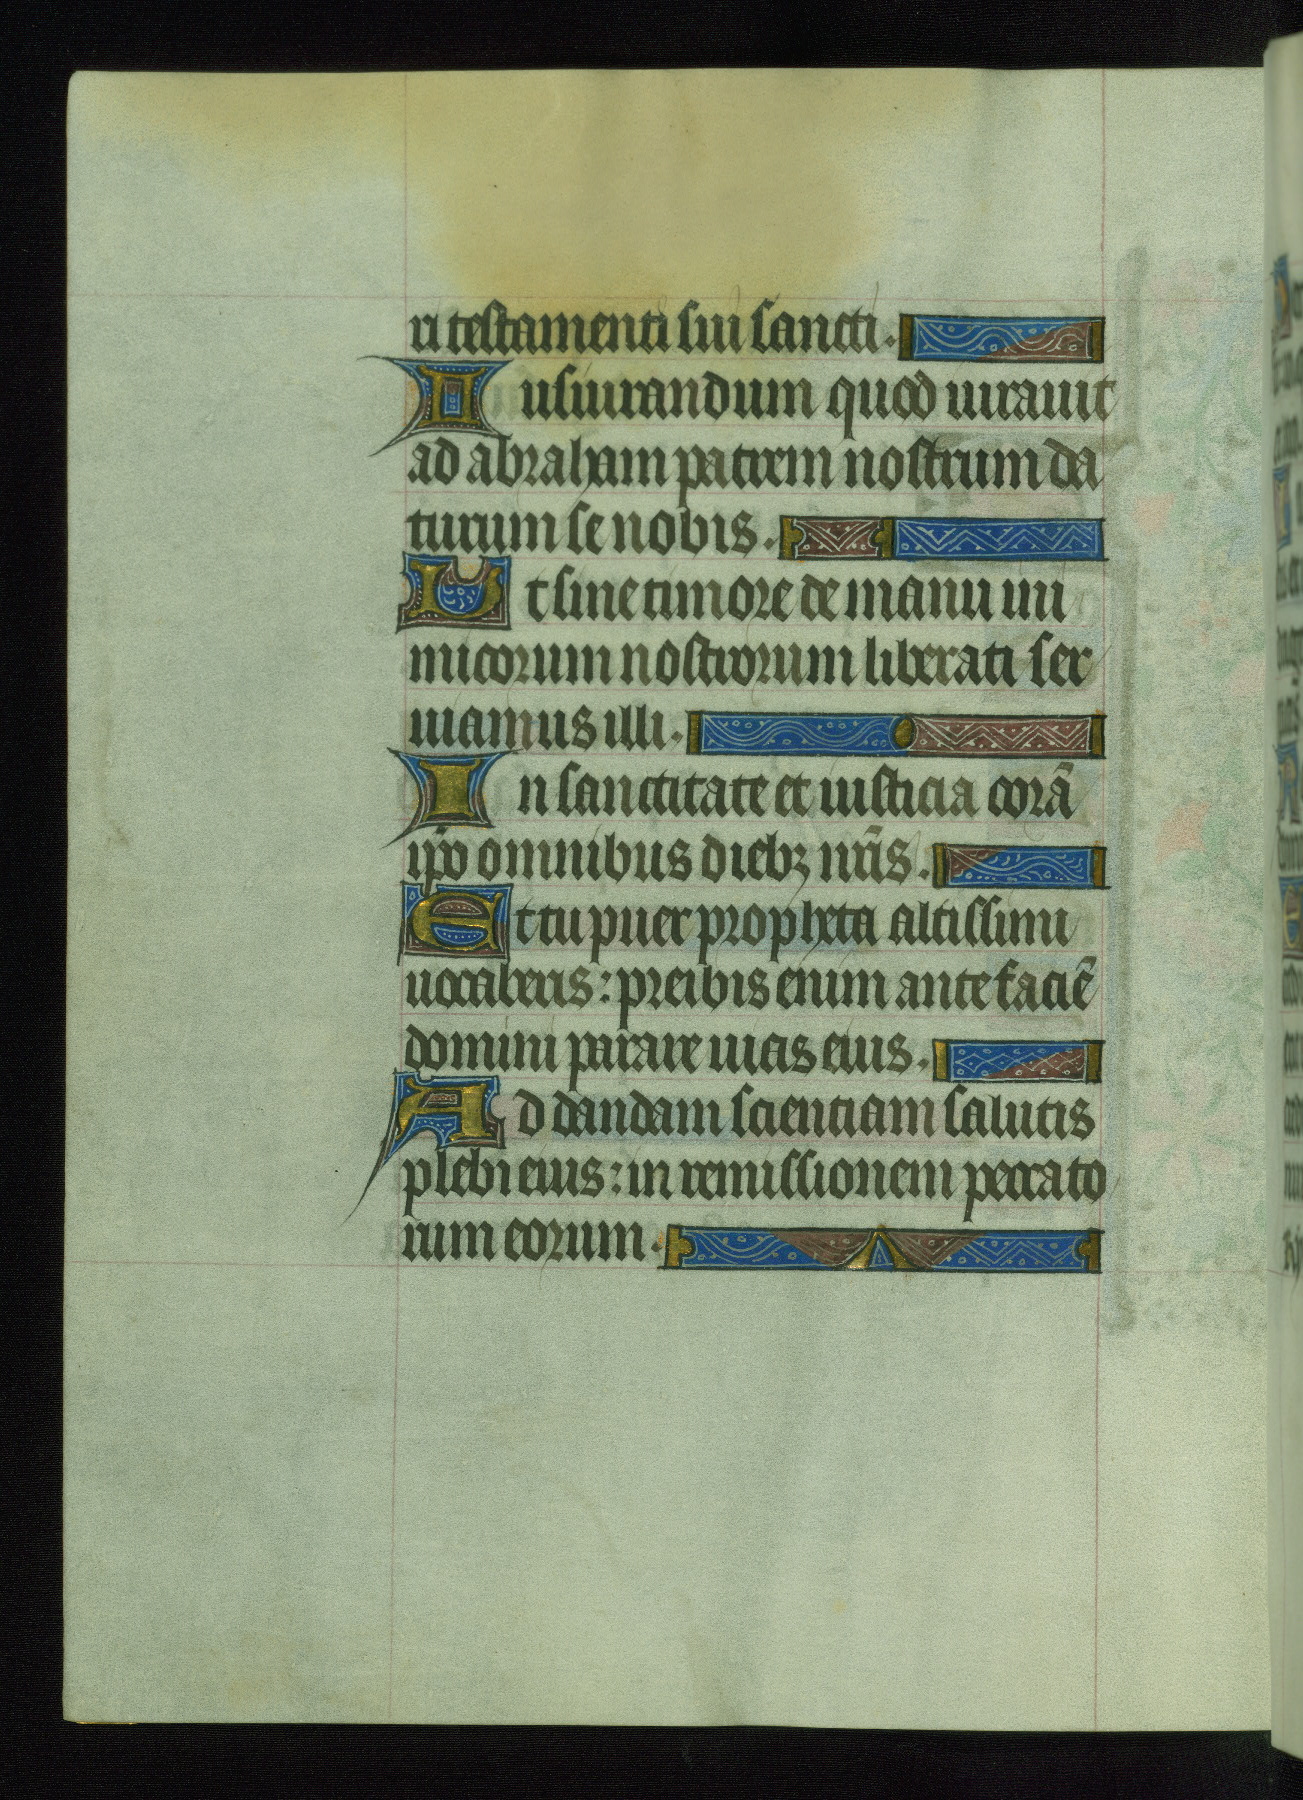 ri testamenti sui sancti.
Iusiurandum quod iurauit
ad abraham patrem nostrum da
turum se nobis.
Ut sine timore de manu ini
micorum nostrorum liberati ser
uiamus illi.
In sanctitate et iusticia corā
ip̄o omnibus dieb; nr̄is.
Et tu puer propheta altissimi
uocaberis: preibis enim ante faciē
domini parare uias eius.
Ad dandam scientiam salutis
plebi eius: in remissionem peccato
rum eorum.